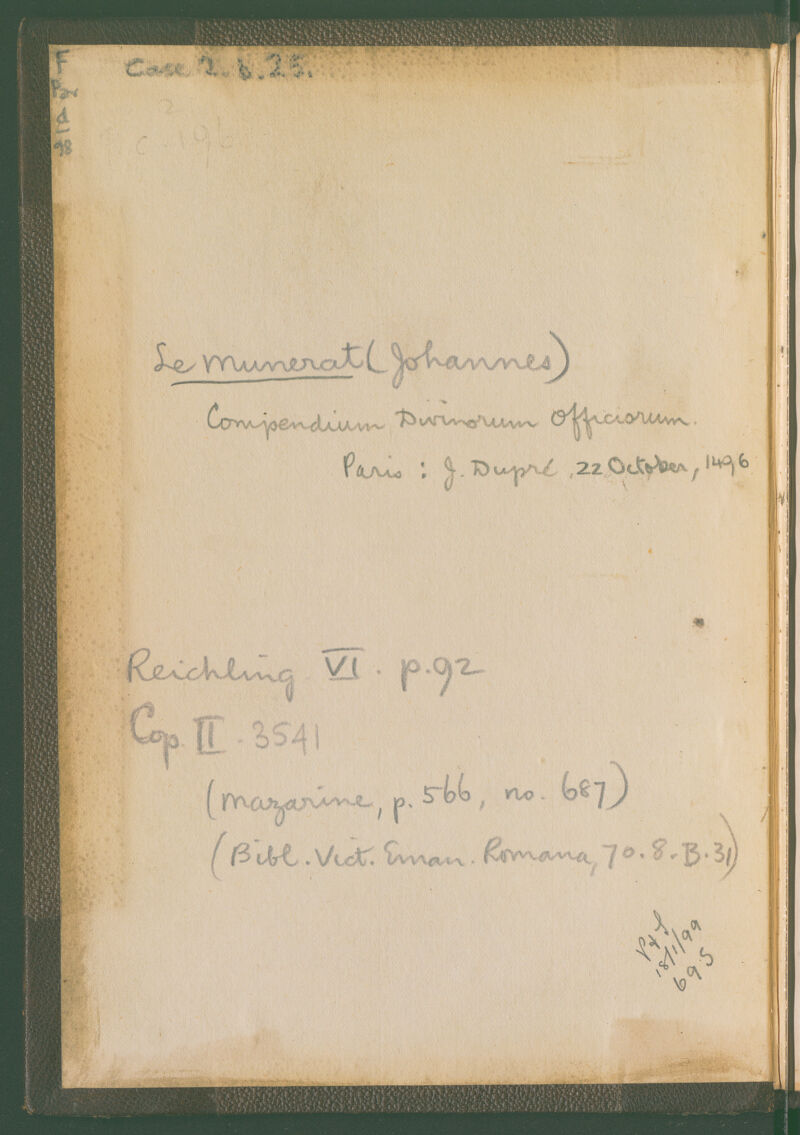 F
Par
d
98
Case 2.b.25.
2
c 196
Le Munerat (Johannes)
Compendium Divinorum Officiorum.
Paris : J. Dupré, 22 October, 1496
Reichling VI. p.92
Cop II. 3541
(Mazarine, p. 566, no. 687)
(Bibl. Vict. Eman. Romana, 70.8.B.31)
18/1/99
695